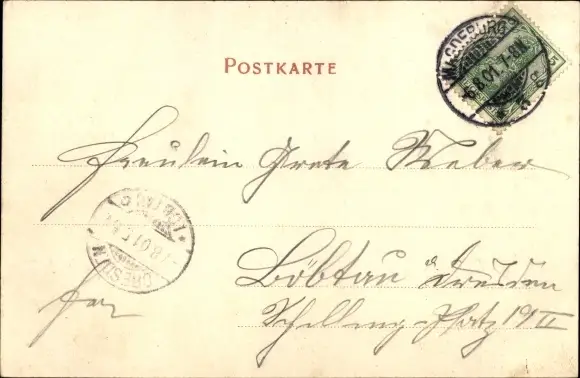 POSTKARTE
MAGDEBURG
6.8.01. 7-8N.
5
Fräulein Grete Weber
DRESDEN
Löbtau b Dresden
Schilling-Platz 19 II